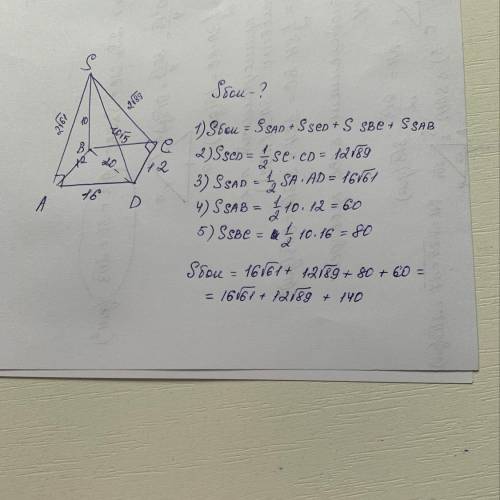 S
2√61
10
2√89
10√5
B
12
20
C
12
A
16
D
Sбок - ?
1) Sбок = SSAD + SSCD + SSBC + SSAB
2) SSCD = 1/2 SC · CD = 12√89
3) SSAD = 1/2 SA · AD = 16√61
4) SSAB = 1/2 10 · 12 = 60
5) SSBC = 1/2 10 · 16 = 80
Sбок = 16√61 + 12√89 + 80 + 60 =
= 16√61 + 12√89 + 140